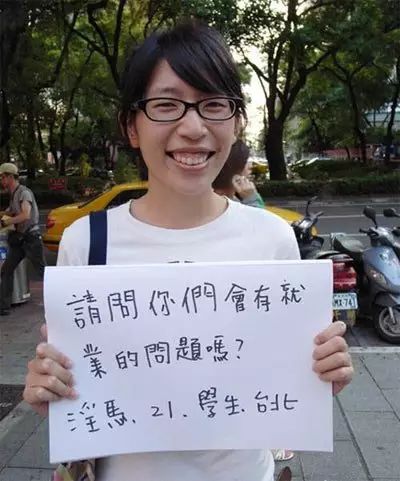 請問你們會有就
業的問題嗎?
淫馬、21、學生、台北
MX-74